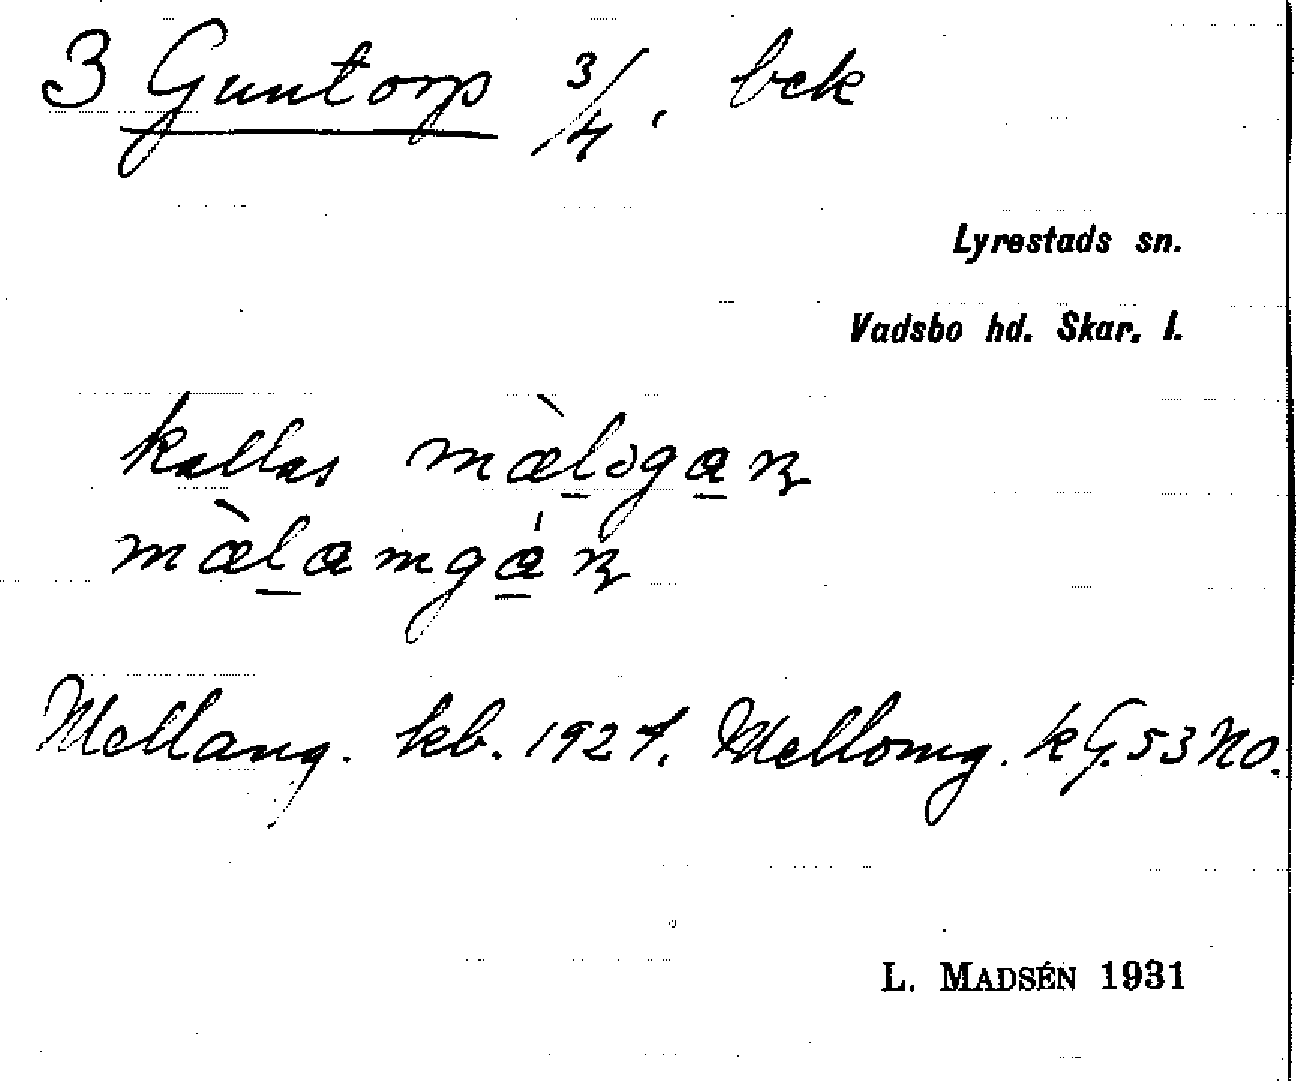 3 Guntorp 3/4, bek
Lyrestads sn.
Vadsbo hd. Skar. l.
kallas mæ̀l̠əga̠ɳ
mæ̀l̠amgá̠ɳ
Mellang. kb. 1927. Mellomg. kG. 53 NO.
L. MADSÉN 1931